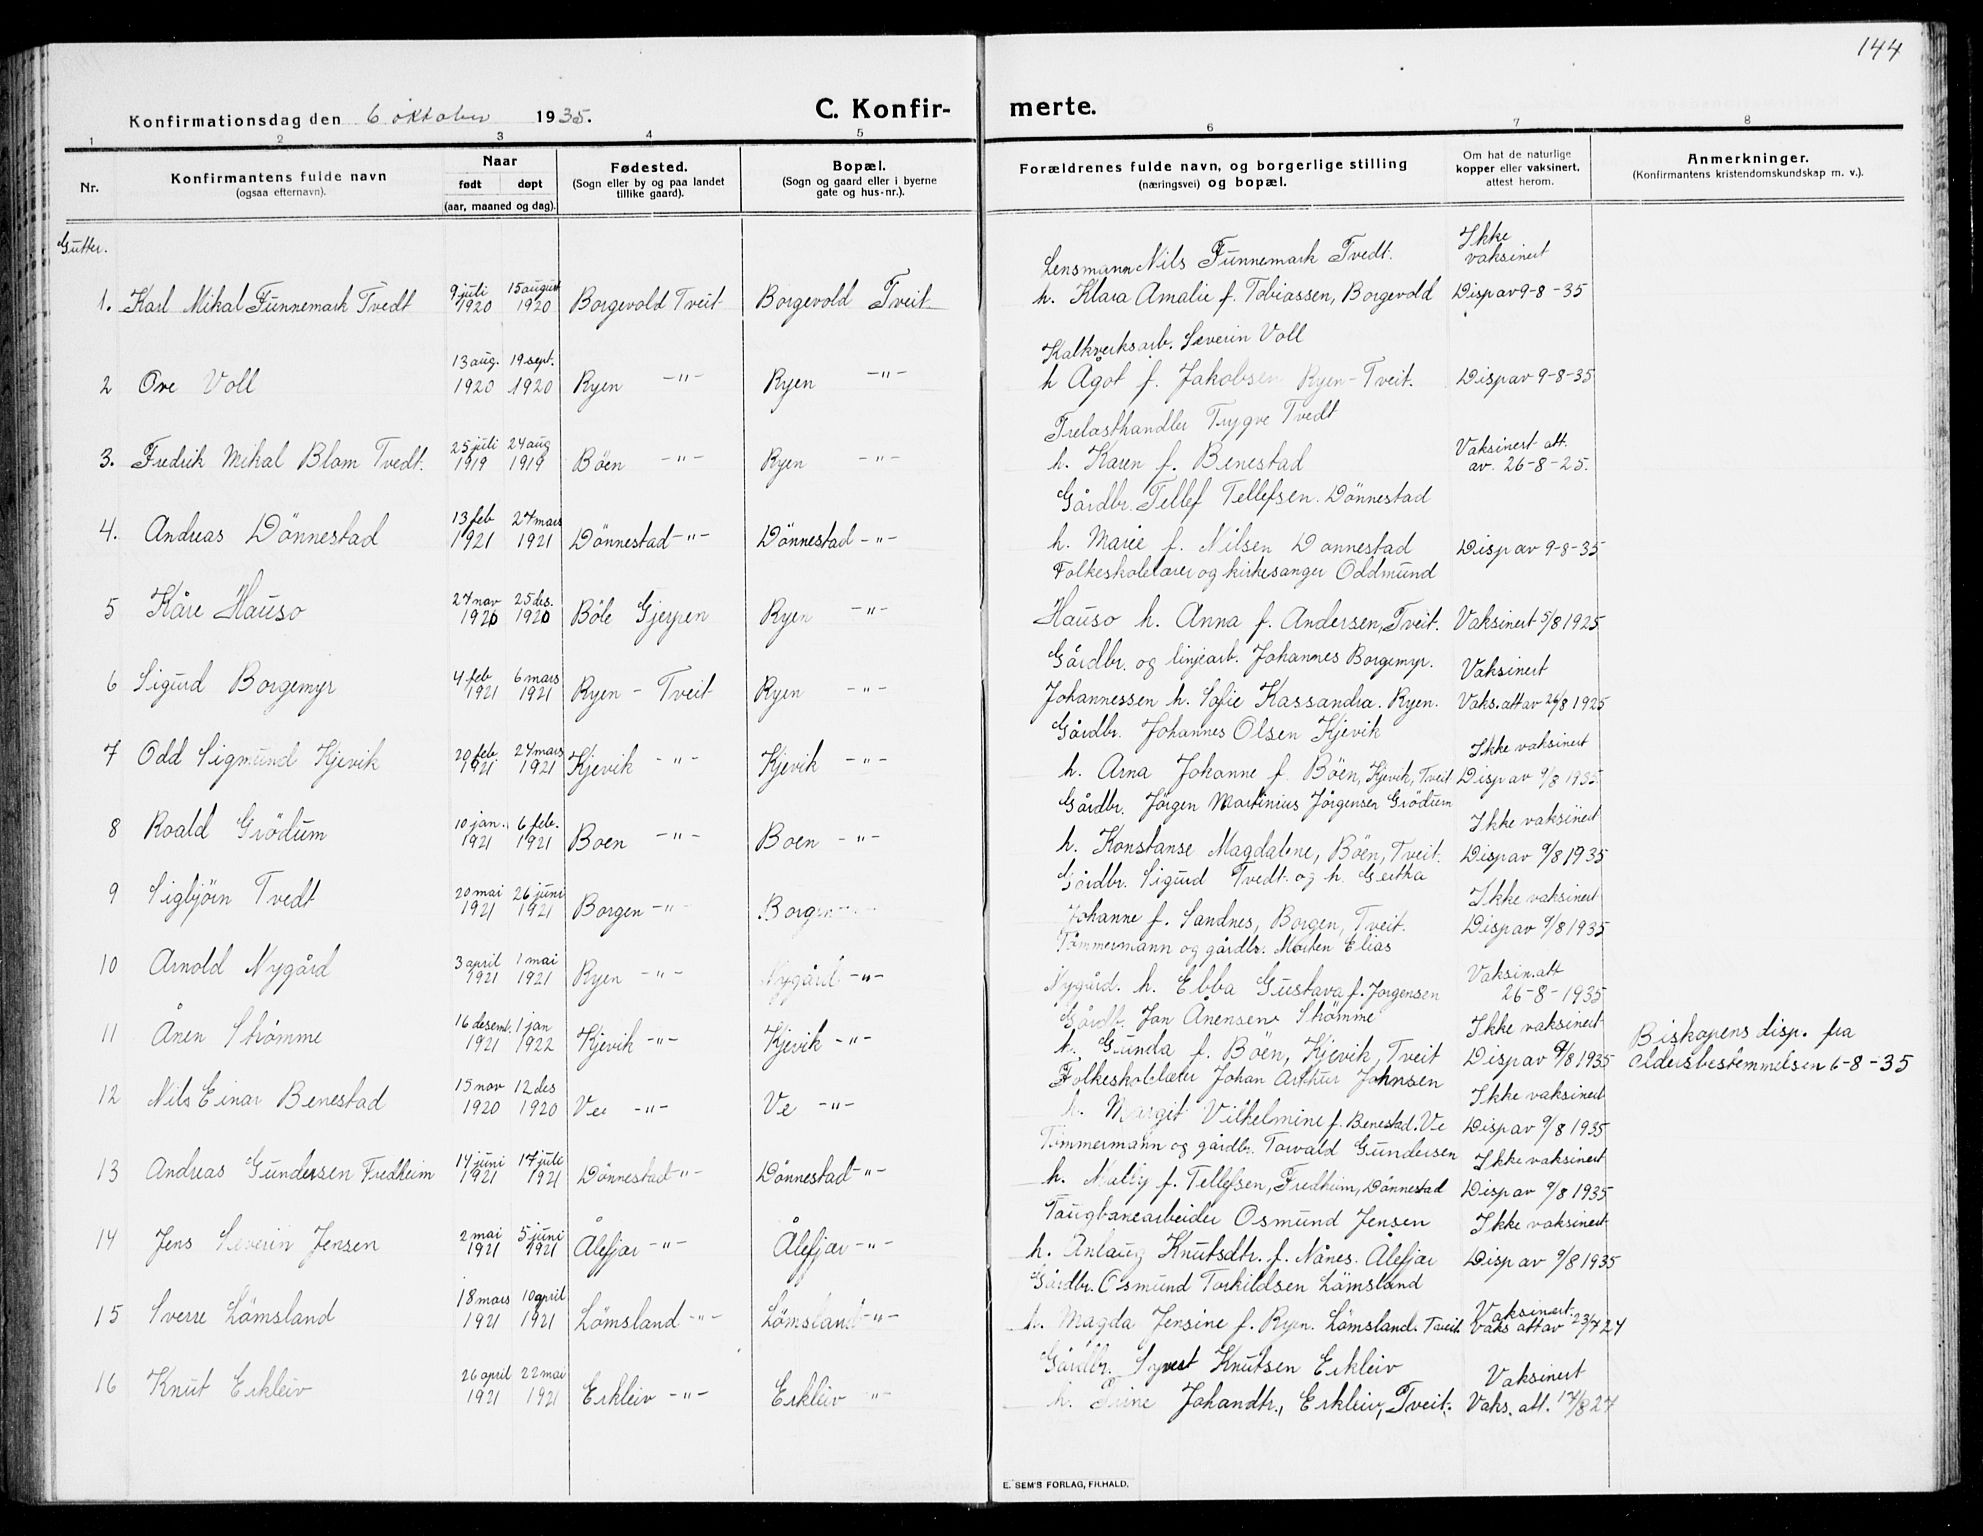 144
Konfirmationsdag den 6 oktober 1935. C. Konfir- merte.
1 2 3 4 5 6 7 8
Nr. Konfirmantens fulde navn (ogsaa efternavn). Naar født døpt (aar, maaned og dag). Fødested. (Sogn eller by og paa landet tillike gaard). Bopæl. (Sogn og gaard eller i byerne gate og hus-nr.). Forældrenes fulde navn, og borgerlige stilling (næringsvei) og bopæl. Om hat de naturlige kopper eller vaksinert, attest herom. Anmerkninger. (Konfirmantens kristendomskundskap m. v.).
Gutter.
Lensmann Nils Funnemark Tvedt. Ikke vaksinert
1. Karl Mikal Funnemark Tvedt 9 juli 1920 15 august 1920 Borgevold Tveit Borgevold Tveit h. Klara Amalie f. Tobiassen, Borgevold Disp av 9-8-35
Kalkverksarb. Severin Voll
2 Ove Voll 13 aug. 1920 19 sept. 1920 Ryen -"- Ryen -"- h Ågot f. Jakobsen Ryen-Tveit. Disp av 9-8-35
Trelasthandler Trygve Tvedt
3. Fredrik Mikal Blom Tvedt. 25 juli 1919 24 aug 1919 Böen -"- Ryen -"- h. Karen f. Benestad Vaksinert att. av. 26-8-25.
Gårdbr. Tellef Tellefsen. Dönnestad
4. Andreas Dönnestad 13 feb 1921 27 mars 1921 Dönnestad -"- Dönnestad -"- h. Marie f. Nilsen Dønnestad Disp av 9-8-35
Folkeskolelærer og kirkesanger Oddmund
5 Kåre Hauso 27 nov 1920 25 des. 1920 Böle Gjerpen Ryen -"- Hauso h. Anna f. Andersen, Tveit. Vaksinert 5/8 1925
Gårdbr. og linjearb. Johannes Borgemyr. Vaksinert
6 Sigurd Borgemyr 4 feb 1921 6 mars 1921 Ryen - Tveit Ryen -"- Johannessen h. Sofie Kassandra. Ryen. Vaks. att av 26/8 1925
Gårdbr. Johannes Olsen Kjevik Ikke vaksinert
7 Odd Sigmund Kjevik 20 feb 1921 27 mars 1921 Kjevik -"- Kjevik -"- h. Arna Johanne f. Böen, Kjevik, Tveit Disp av 9/8 1935
Gårdbr. Jørgen Martinius Jørgensen Grödum Ikke vaksinert
8 Roald Grödum 10 jan. 1921 6 feb. 1921 Boen -"- Boen -"- h. Konstanse Magdalene, Böen, Tveit. Disp av 9/8 1935
Gårdbr. Sigurd Tvedt og h. Gertha Ikke vaksinert
9 Sigbjörn Tvedt 20 mai 1921 26 juni 1921 Borgen -"- Borgen -"- Johanne f. Sandnes, Borgen, Tveit. Disp av 9/8 1935
Tömmermann og gårdbr. Morten Elias
10 Arnold Nygård 3 april 1921 1 mai 1921 Ryen -"- Nygård -"- Nygård. h. Ebba Gustava f. Jorgensen Vaksin. att 26-8-1935
Gårdb. Jan Ånensen Strömme Ikke vaksinert
11 Ånen Strømme 16 desemt. 1921 1 jan 1922 Kjevik -"- Kjevik -"- h. Gunda f. Böen, Kjevik, Tveit Disp av 9/8 1935 Biskopens disp. fra aldersbestemmelsen 6-8-35
Folkeskolelærer Johan Arthur Johnsen Ikke vaksinert
12 Nils Einar Benestad 15 nov 1920 12 des 1920 Ve -"- Ve -"- h. Margit Vilhelmine f. Benestad. Ve Disp av 9/8 1935
Tömmermann og gårdbr. Torvald Gundersen Ikke vaksinert
13 Andreas Gundersen Fredheim 14 juni 1921 17 juli 1921 Dönnestad -"- Dönnestad -"- h. Mally f. Tellefsen, Fredheim, Dönnestad Disp av 9/8 1935
Taugbanearbeider Osmund Jensen Ikke vaksinert
14 Jens Severin Jensen 2 mai 1921 5 juni 1921 Ålefjær -"- Ålefjær -"- h. Anlaug Knutsdtr. f. Nånes. Ålefjær Disp av 9/8 1935
Gårdbr. Osmund Torkildsen Lömsland Vaksinert.
15 Sverre Lömsland 18 mars 1921 10 april 1921 Lömsland -"- Lömsland -"- h. Magda Jensine f. Ryen. Lömsland. Tveit. Vaks att av 23/7 27
Gårdbr. Syvert Knutsen Erkleiv Vaksinert
16 Knut Erkleiv 26 april 1921 22 mai 1921 Erkleiv -"- Erkleiv -"- h. Trine Johandtr., Erkleiv, Tveit. Vaks. att. 17/8 27
E. SEM'S FORLAG, FR.HALD.